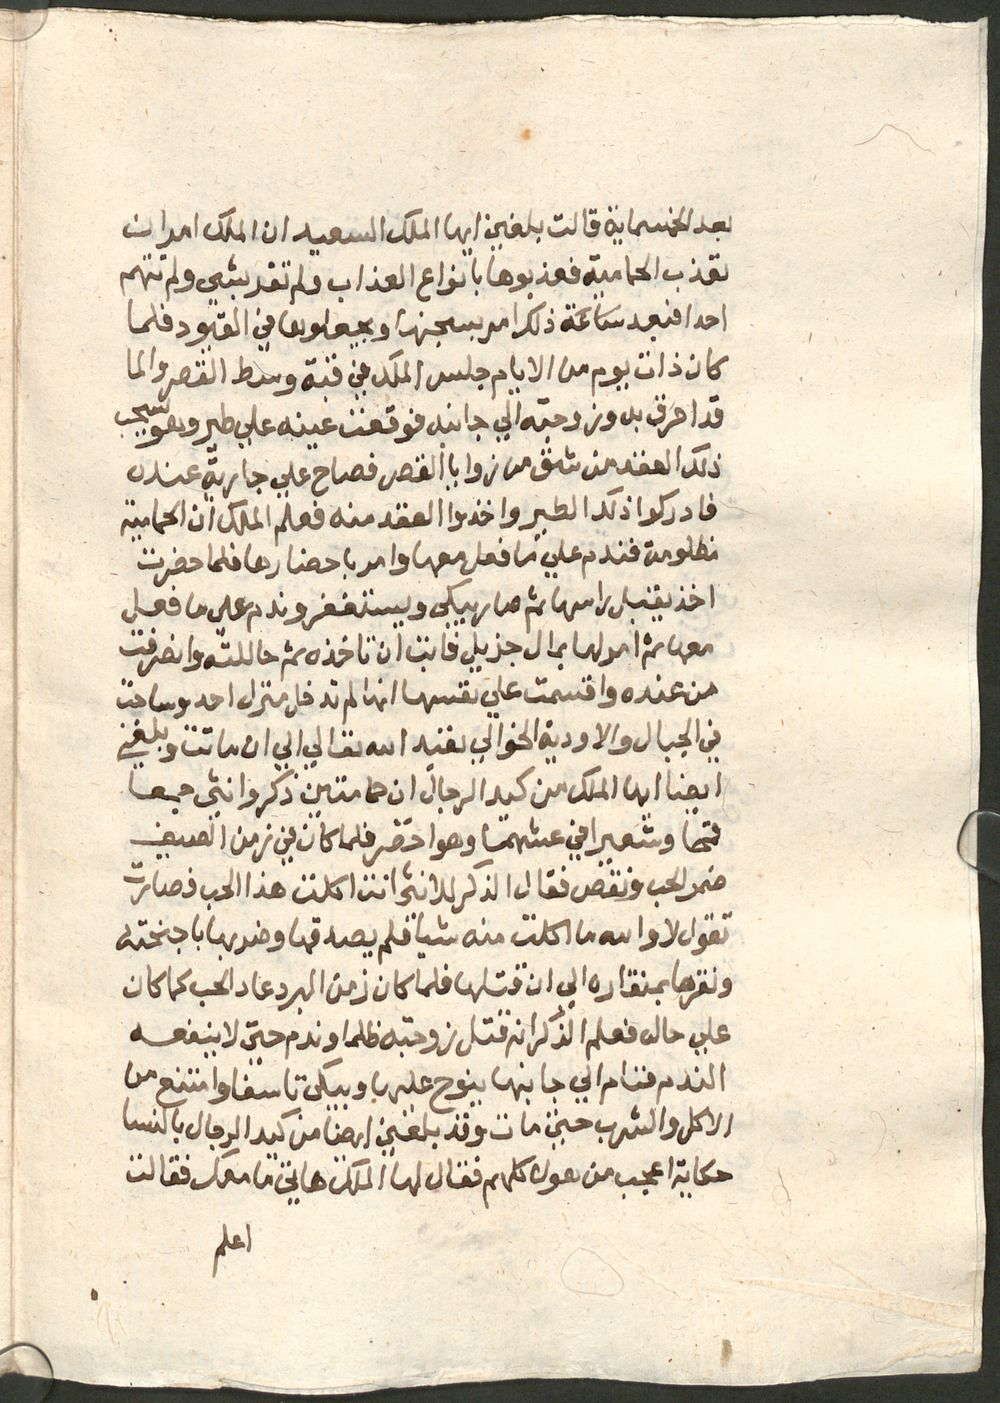 بعد الخمسماية قالت بلغني ايها الملك السعيد ان الملك امر ان
تعذب الحمامية فعذبوها بانواع العذاب ولم تقر بشي ولم تتهم
احدا فبعد ساعة ذلك امر بسجنها ويجعلوها في القيود فلما
كان ذات يوم من الايام جلس الملك في قبة وسط القصر والما
قد احرق به وزوجته الي جانبه فوقعت عينه علي طير وهو يسحب
ذلك العقد من شق من زوايا القصر فصاح علي جارية عنده
فادركوا ذلك الطير واخذوا العقد منه فعلم الملك ان الحمامية
مظلومة فندم علي ما فعل معها وامر باحضارها فلما حضرت
اخذ يقبل راسها ثم صار يبكي ويستغفر وندم علي ما فعل
معها ثم امر لها بمال جزيل فابت ان تاخذه ثم حاللته وانصرفت
من عنده واقسمت علي نفسها انها لم تدخل منزل احد وساحت
في الجبال والاودية الخوالي تعبد الله تعالي الي ان ماتت وبلغني
ايضا ايها الملك من كيد الرجال ان حمامتين ذكر وانثي جمعا
قمحا وشعيرا في عشهما وهو اخضر فلما كان في زمن الصيف
ضمر الحب ونقص فقال الذكر للانثي انت اكلت هذا الحب فصارت
تقول لا والله ما اكلت منه شيا فلم يصدقها وضربها باجنحته
ونقرها بمنقاره الي ان قتلها فلما كان زمن البرد عاد الحب كما كان
علي حاله فعلم الذكر انه قتل زوجته ظلما وندم حتي لا ينفعه
الندم فنام الي جانبها ينوح عليها ويبكي تاسفا وامتنع من
الاكل والشرب حتي مات وقد بلغني ايضا من كيد الرجال بالنسا
حكاية اعجب من هولا كلهم فقال لها الملك هاتي ما معك فقالت
اعلم